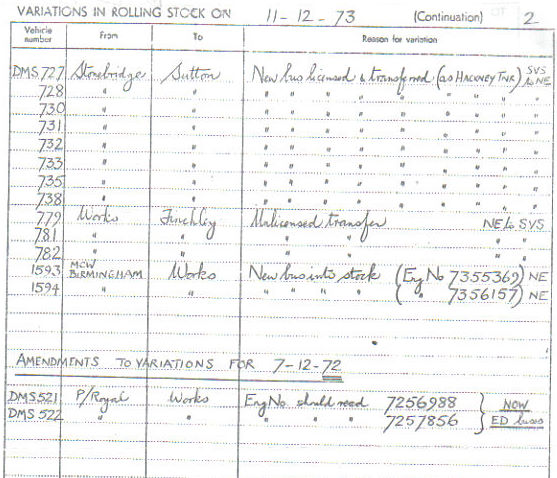 VARIATIONS IN ROLLING STOCK ON 11-12-73 (Continuation) 2
Vehicle number From To Reason for variation
DMS 727 Stonebridge Sutton New bus licensed & transferred (as HACKNEY TNR) SVS to NE
728 " " " " " " " " " " "
730 " " " " " " " " " " "
731 " " " " " " " " " " "
732 " " " " " " " " " " "
733 " " " " " " " " " " "
735 " " " " " " " " " " "
738 " " " " " " " " " " "
779 Works Finchley Unlicensed transfer NE to SVS
781 " " " " " "
782 " " " " " "
1593 MCW BIRMINGHAM Works New bus into stock (Eng No 7355369) NE
1594 " " " " " " ( " 7356157) NE
AMENDMENTS TO VARIATIONS FOR 7-12-72
DMS 521 P/Royal Works Eng No. should read 7256988 } NOW
DMS 522 " " " " " 7257856 } ED buses